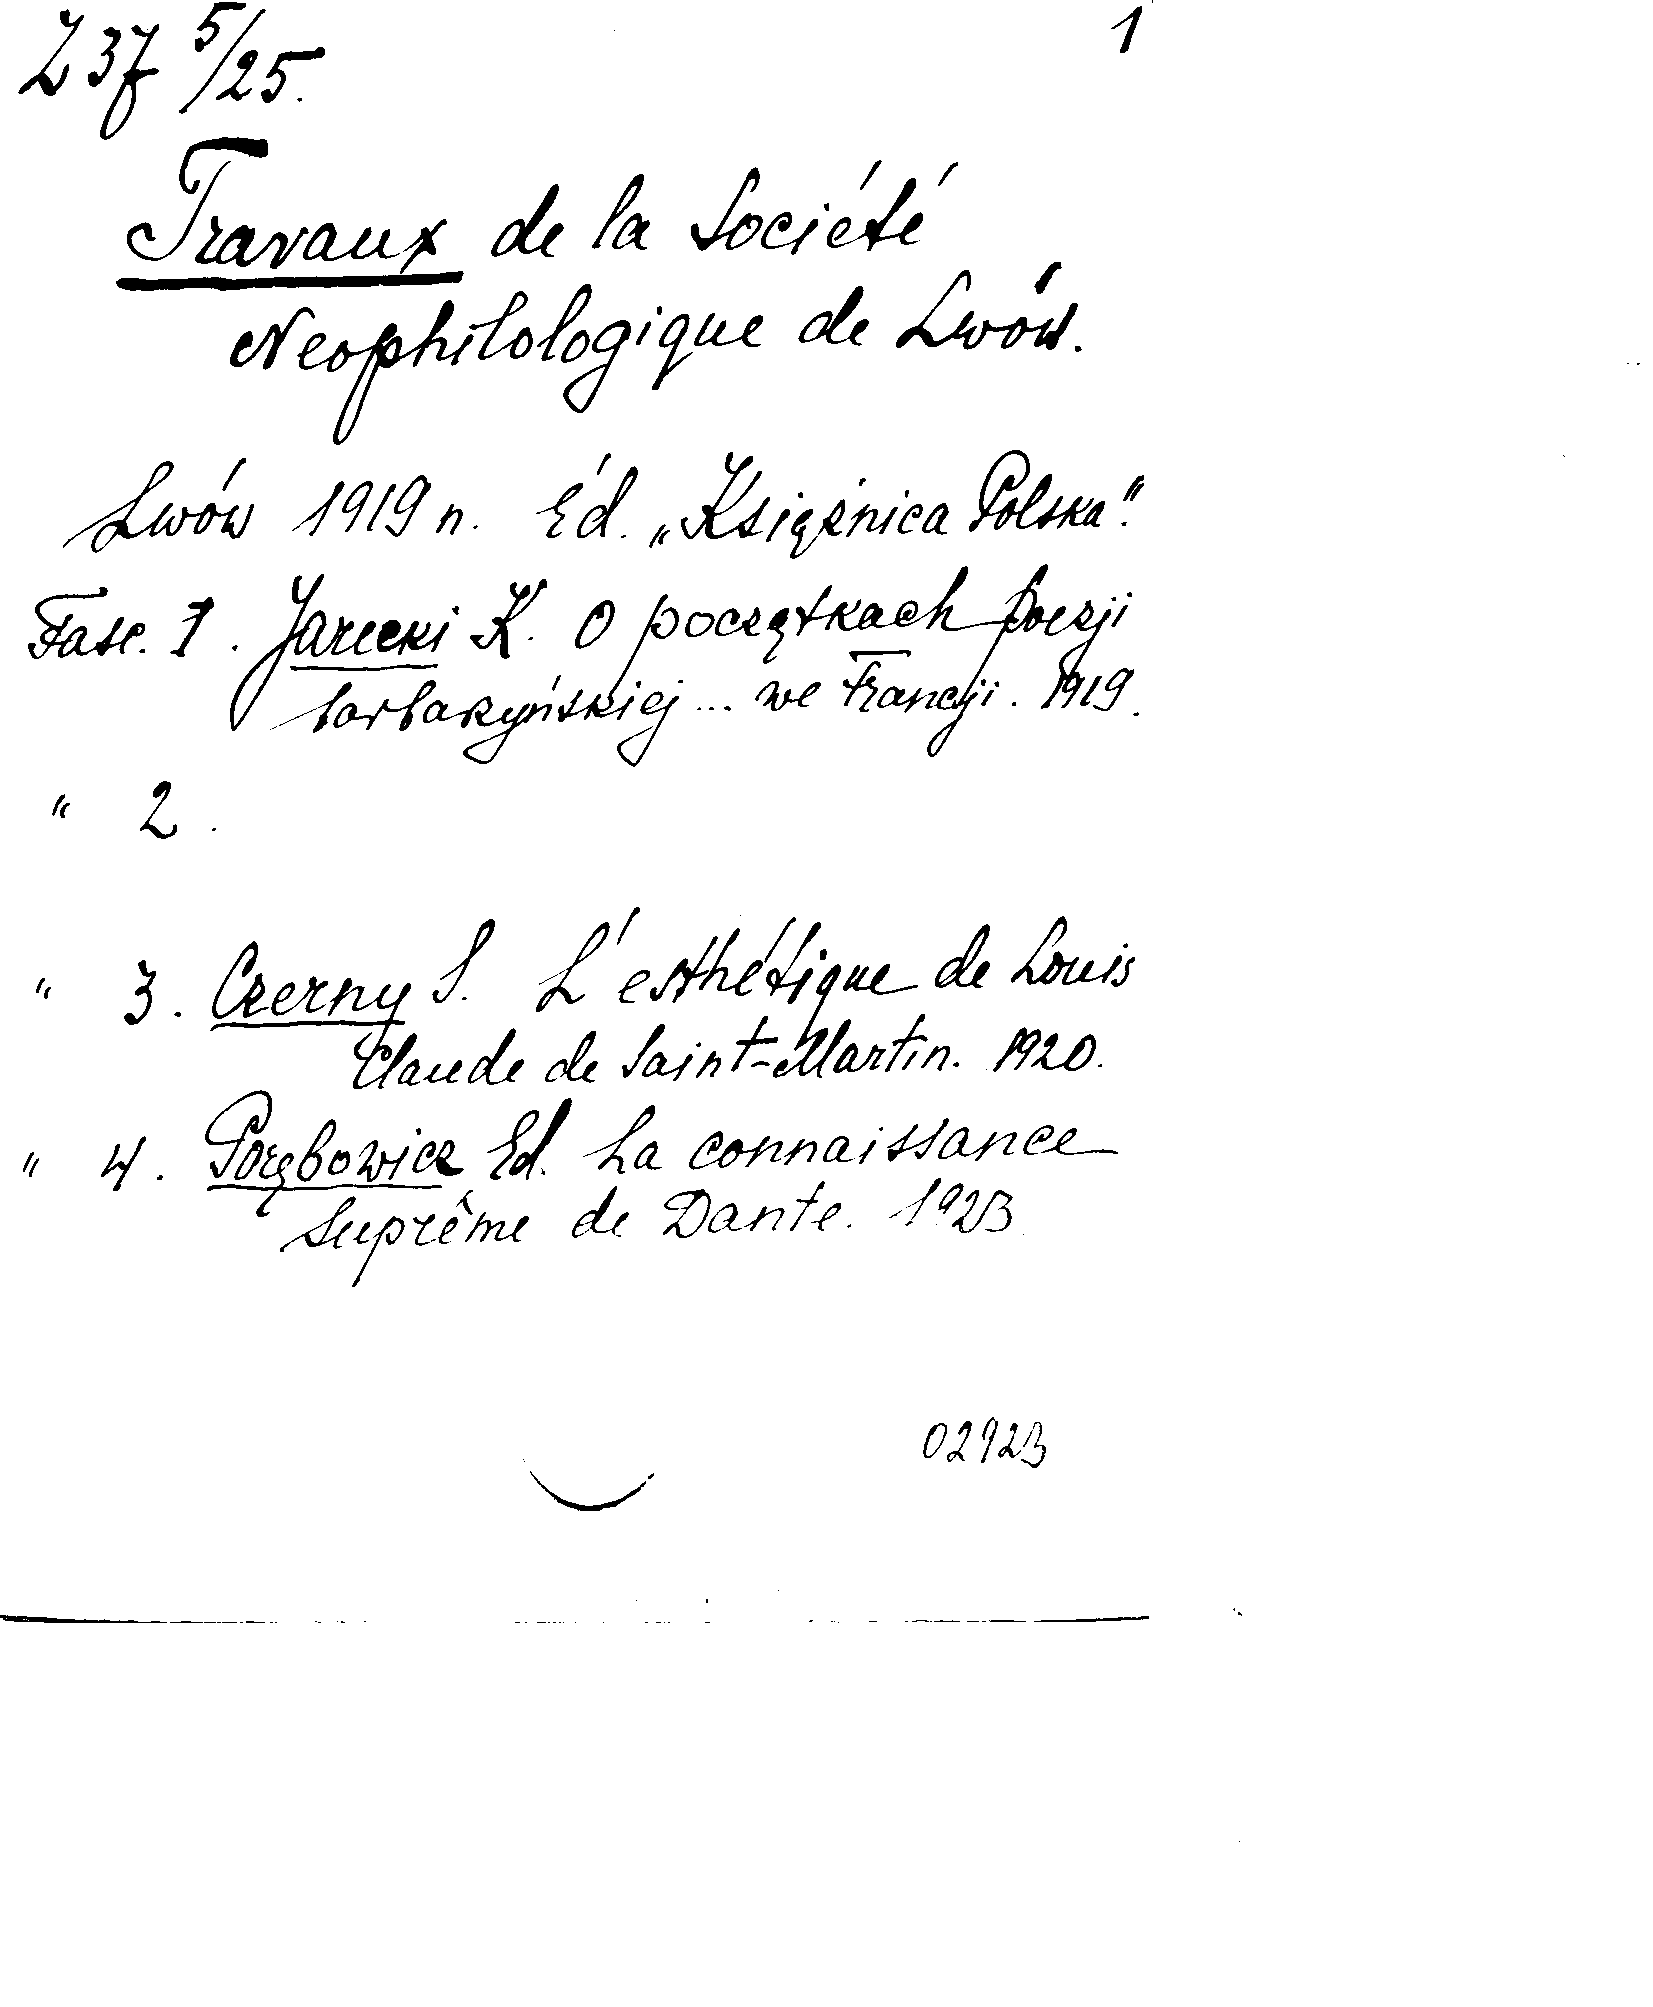 237 5/25.
1
Travaux de la Société
Neophilologique de Lwów.
Lwów 1919 n. Éd. „Książnica Polska".
Fasc. 1. Jarecki K. O początkach poezji
barbaryńskiej... we Francji. 1919.
" 2.
" 3. Czerny S. L'esthétique de Louis
Claude de Saint-Martin. 1920.
" 4. Porębowicz Ed. La connaissance
Suprême de Dante. 1923
02923